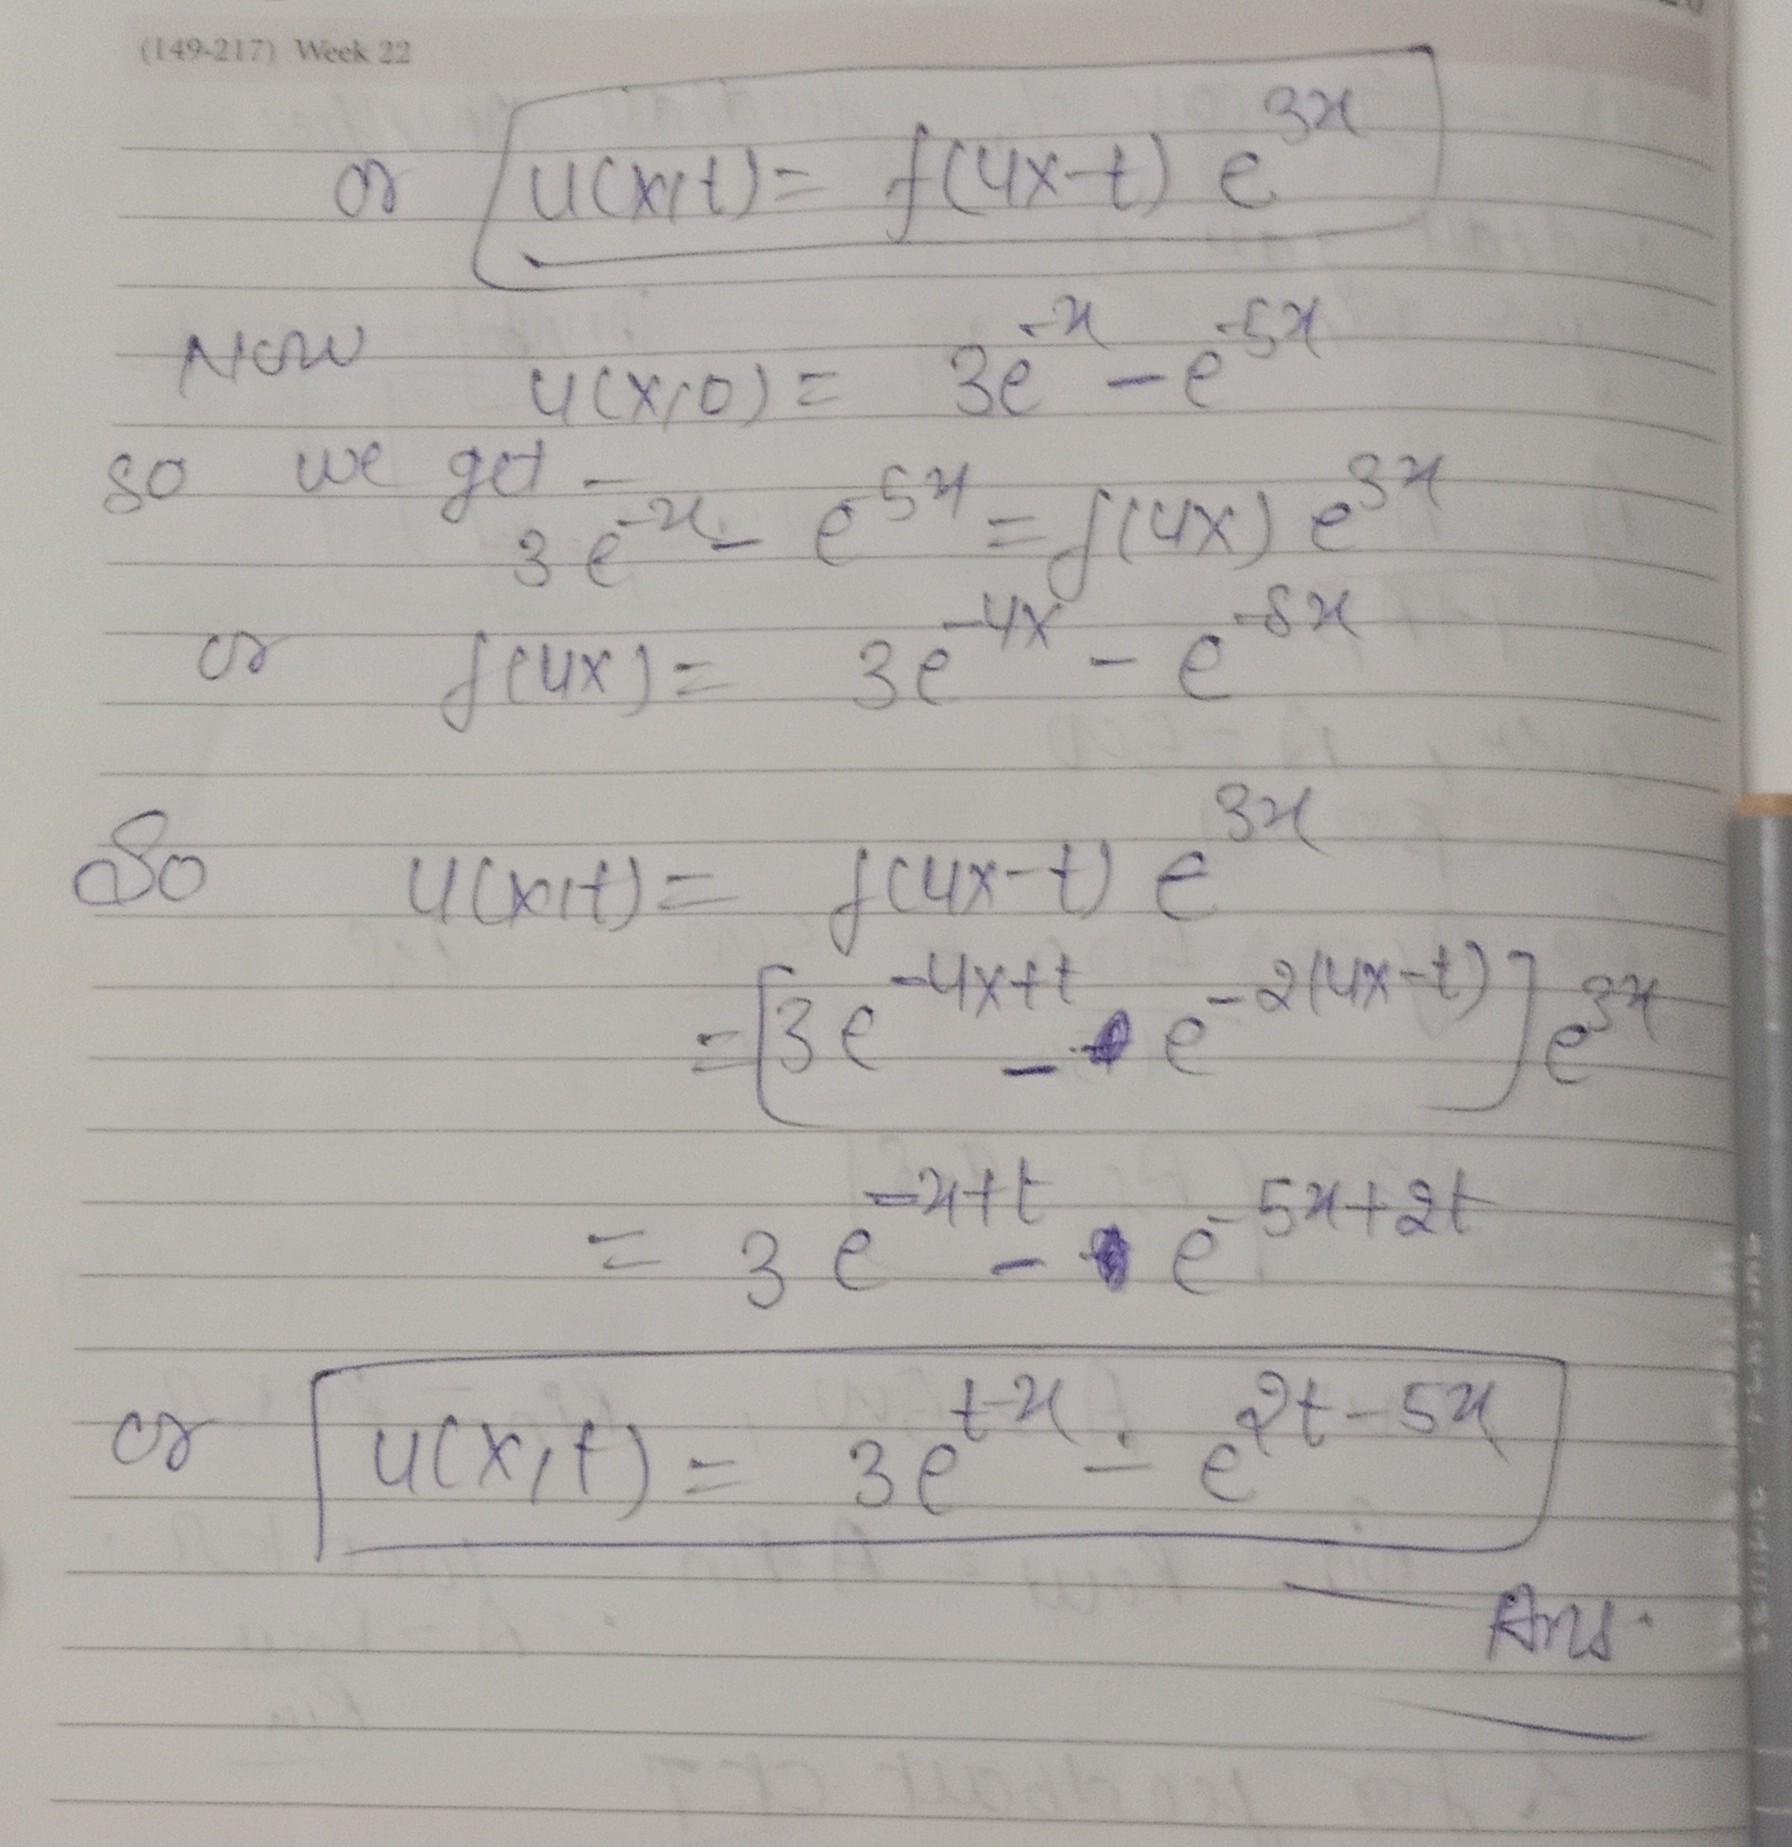 (149-217) Week 22
or u(x,t) = f(4x-t) e^{3x}
Now u(x,0) = 3e^{-x} - e^{-5x}
so we get -
3e^{-x} - e^{-5x} = f(4x) e^{3x}
or f(4x) = 3e^{-4x} - e^{-8x}
So u(x,t) = f(4x-t) e^{3x}
= [3e^{-4x+t} - e^{-2(4x-t)}] e^{3x}
= 3e^{-x+t} - e^{-5x+2t}
or u(x,t) = 3e^{t-x} - e^{2t-5x}
Ans.